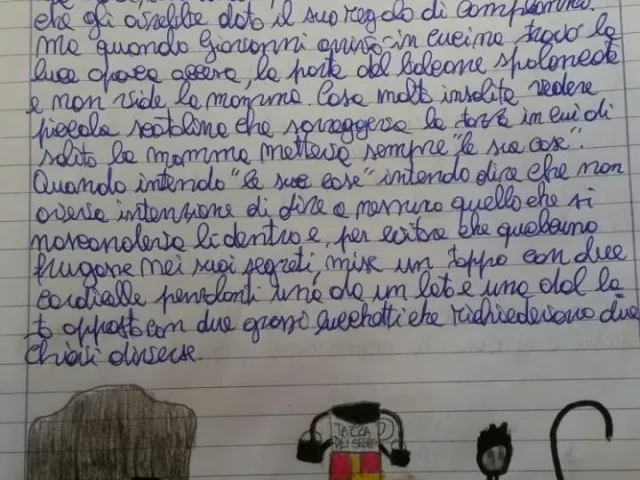 che gli avrebbe dato il suo regalo di compleanno.
ma quando Giovanni arrivò in cucina, trovò la
luce ancora accesa, la porta del balcone spalancata
e non vide la mamma. Cosa molto insolita vedere
piccola scatolina che sorreggeva la tazza in cui di
solito la mamma metteva sempre "le sue cose".
Quando intendo "le sue cose" intendo dire che non
aveva intenzione di dire a nessuno quello che si
nascondeva lì dentro e, per evitare che qualcuno
frugasse nei suoi segreti, mise un tappo con due
cordicelle penzolanti una da un lato e una dal la
to opposto con due grossi lucchetti che richiedevano due
chiavi diverse.
TAZZA
DEI SEGRETI